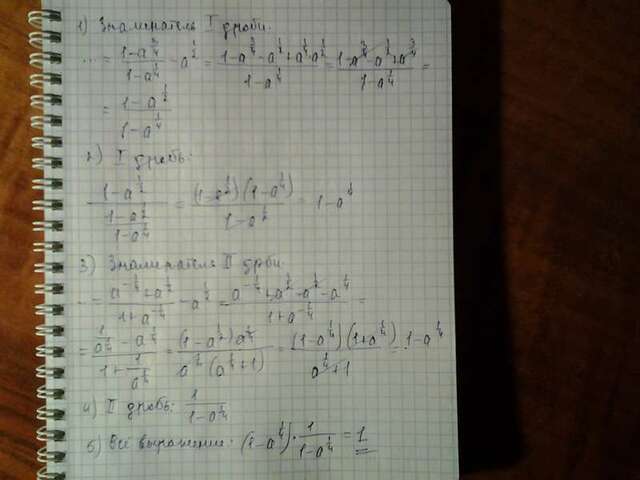 1) Знаменатель I дроби.
... = (1-a^(3/4))/(1-a^(1/4)) - a^(1/2) = (1-a^(3/4)-a^(1/2)+a^(1/4)·a^(1/2))/(1-a^(1/4)) = (1-a^(3/4)-a^(1/2)+a^(3/4))/(1-a^(1/4)) =
= (1-a^(1/2))/(1-a^(1/4))
2) I дробь:
(1-a^(1/2))/((1-a^(1/2))/(1-a^(1/4))) = (1-a^(1/2))(1-a^(1/4))/(1-a^(1/2)) = 1-a^(1/4)
3) Знаменатель II дроби.
... = (a^(-1/4)+a^(1/2))/(1+a^(-1/4)) - a^(1/2) = (a^(-1/4)+a^(1/2)-a^(1/2)-a^(1/4))/(1+a^(-1/4)) =
= (1/a^(1/4) - a^(1/4))/(1+1/a^(1/4)) = (1-a^(1/2))a^(1/4)/(a^(1/4)(a^(1/4)+1)) = (1-a^(1/4))(1+a^(1/4))/(a^(1/4)+1) = 1-a^(1/4)
4) I дробь: 1/(1-a^(1/4))
5) Всё выражение: (1-a^(1/4))·1/(1-a^(1/4)) = 1